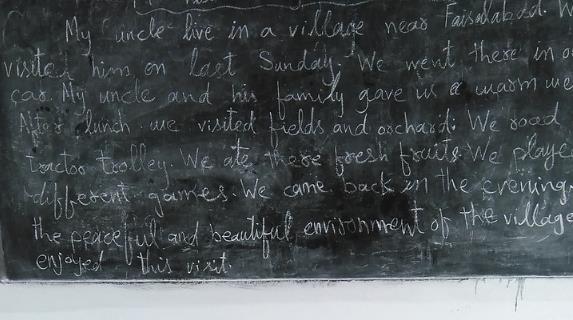 My uncle live in a village near Faisalabad. W
visited him on last Sunday. We went there in o
car. My uncle and his family gave us a warm we
After lunch we visited fields and orchard. We road
tractor trolley. We ate there fresh fruits. We playe
different games. We came back in the evening.
the peaceful and beautiful environment of the village
enjoyed this visit.